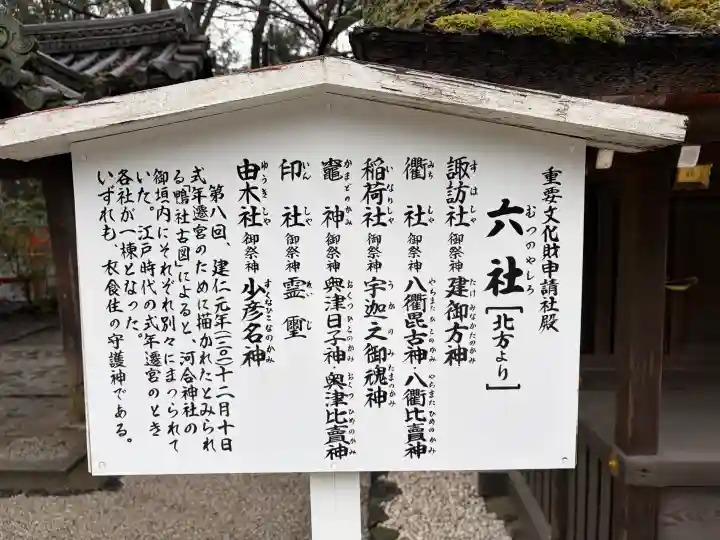 重要文化財申請社殿
六社[北方より]
むつのやしろ
諏訪社 御祭神 建御方神
すはしゃ たけみなかたのかみ
衢社 御祭神 八衢毘古神・八衢比賣神
みちしゃ やちまたひこのかみ やちまたひめのかみ
稲荷社 御祭神 宇迦之御魂神
いなりしゃ うかのみたまのかみ
竈神 御祭神 奥津日子神・奥津比賣神
かまどのかみ おくつひこのかみ おくつひめのかみ
印社 御祭神 霊璽
いんしゃ れいじ
由木社 御祭神 少彦名神
ゆうきしゃ すくなひこなのかみ
第八回、建仁元年(一二〇一)十二月十日
式年遷宮のために描かれたとみられ
る「鴨社古図」によると、河合神社の
御垣内にそれぞれ別々にまつられて
いた。江戸時代の式年遷宮のとき
各社が一棟となった。
いずれも、衣食住の守護神である。